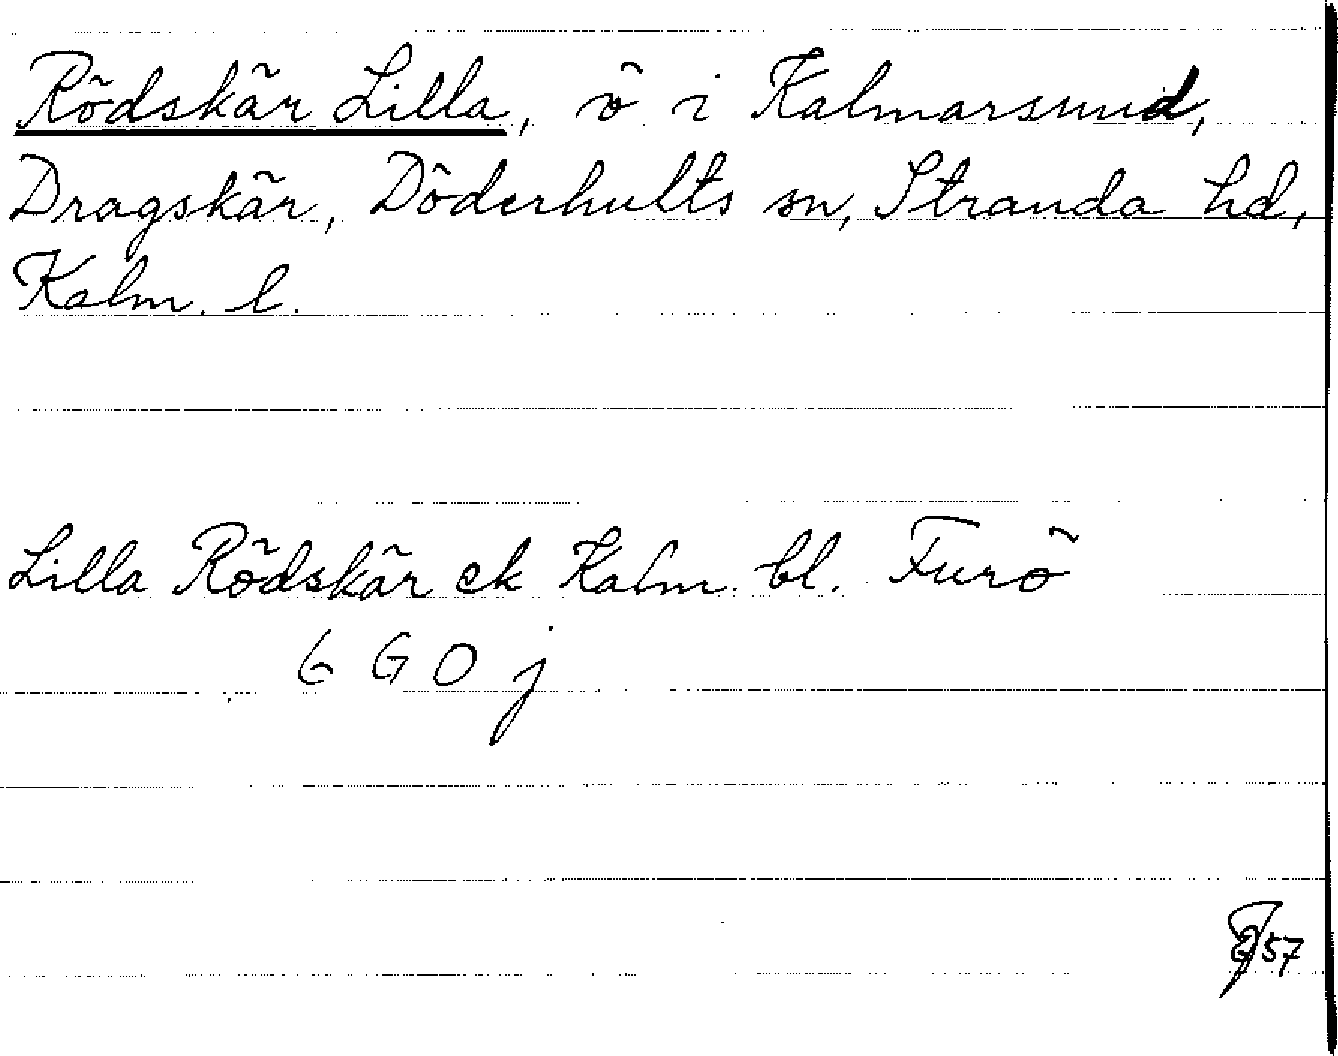 Rödskär Lilla, ö i Kalmarsund,
Dragskär, Döderhults sn, Stranda hd,
Kalm. l.
Lilla Rödskär ek Kalm. bl. Furö
6 G O j
57